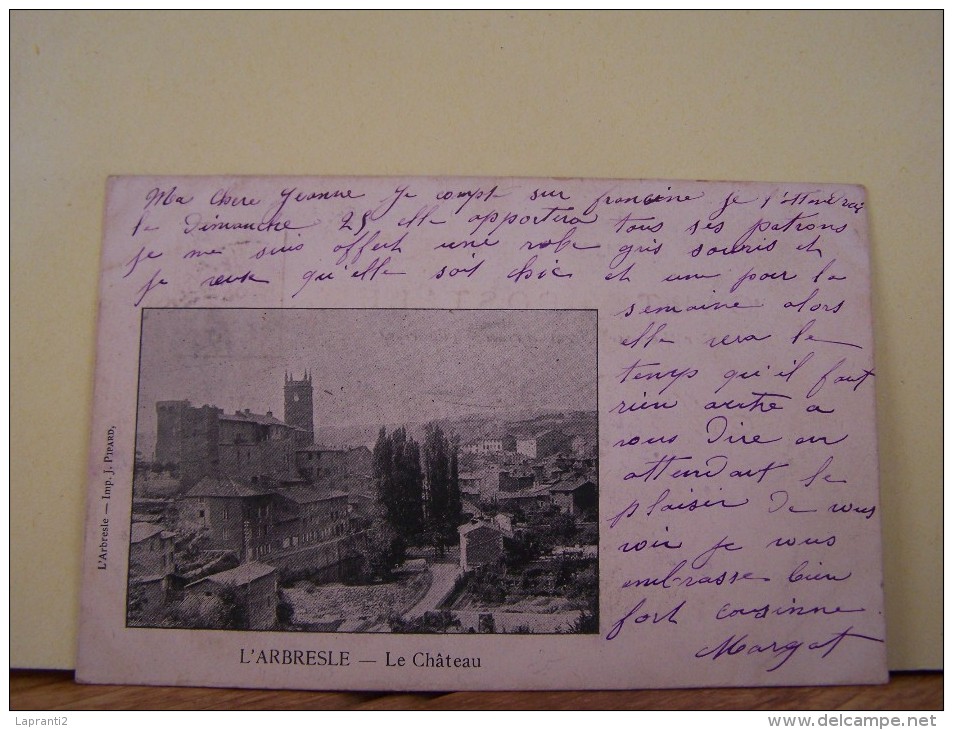 Ma chere Yeanne je compt sur francine je l'attendrai
le Dimanche 25 elle apportera tous ses patrons
je me suis offert une robe gris souris et
je veux qu'elle soit chic et une pour la
semaine alors
elle vera le
temps qu'il faut
rien autre a
vous Dire en
attendant le
plaisir De vous
voir je vous
embrasse bien
fort cousinne
Margat
L'Arbresle — Imp. J. PIPARD,
L'ARBRESLE — Le Château
Lapranti2
www.delcampe.net